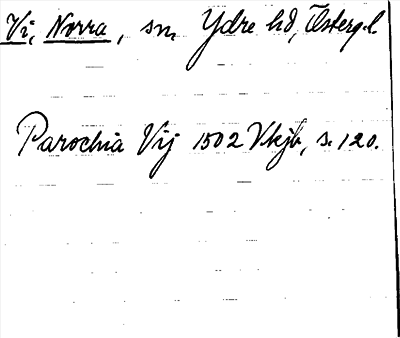 Vi, Norra, sn, Ydre hd, Östergl.
Parochia Vij 1502 Vkjb, s. 120.